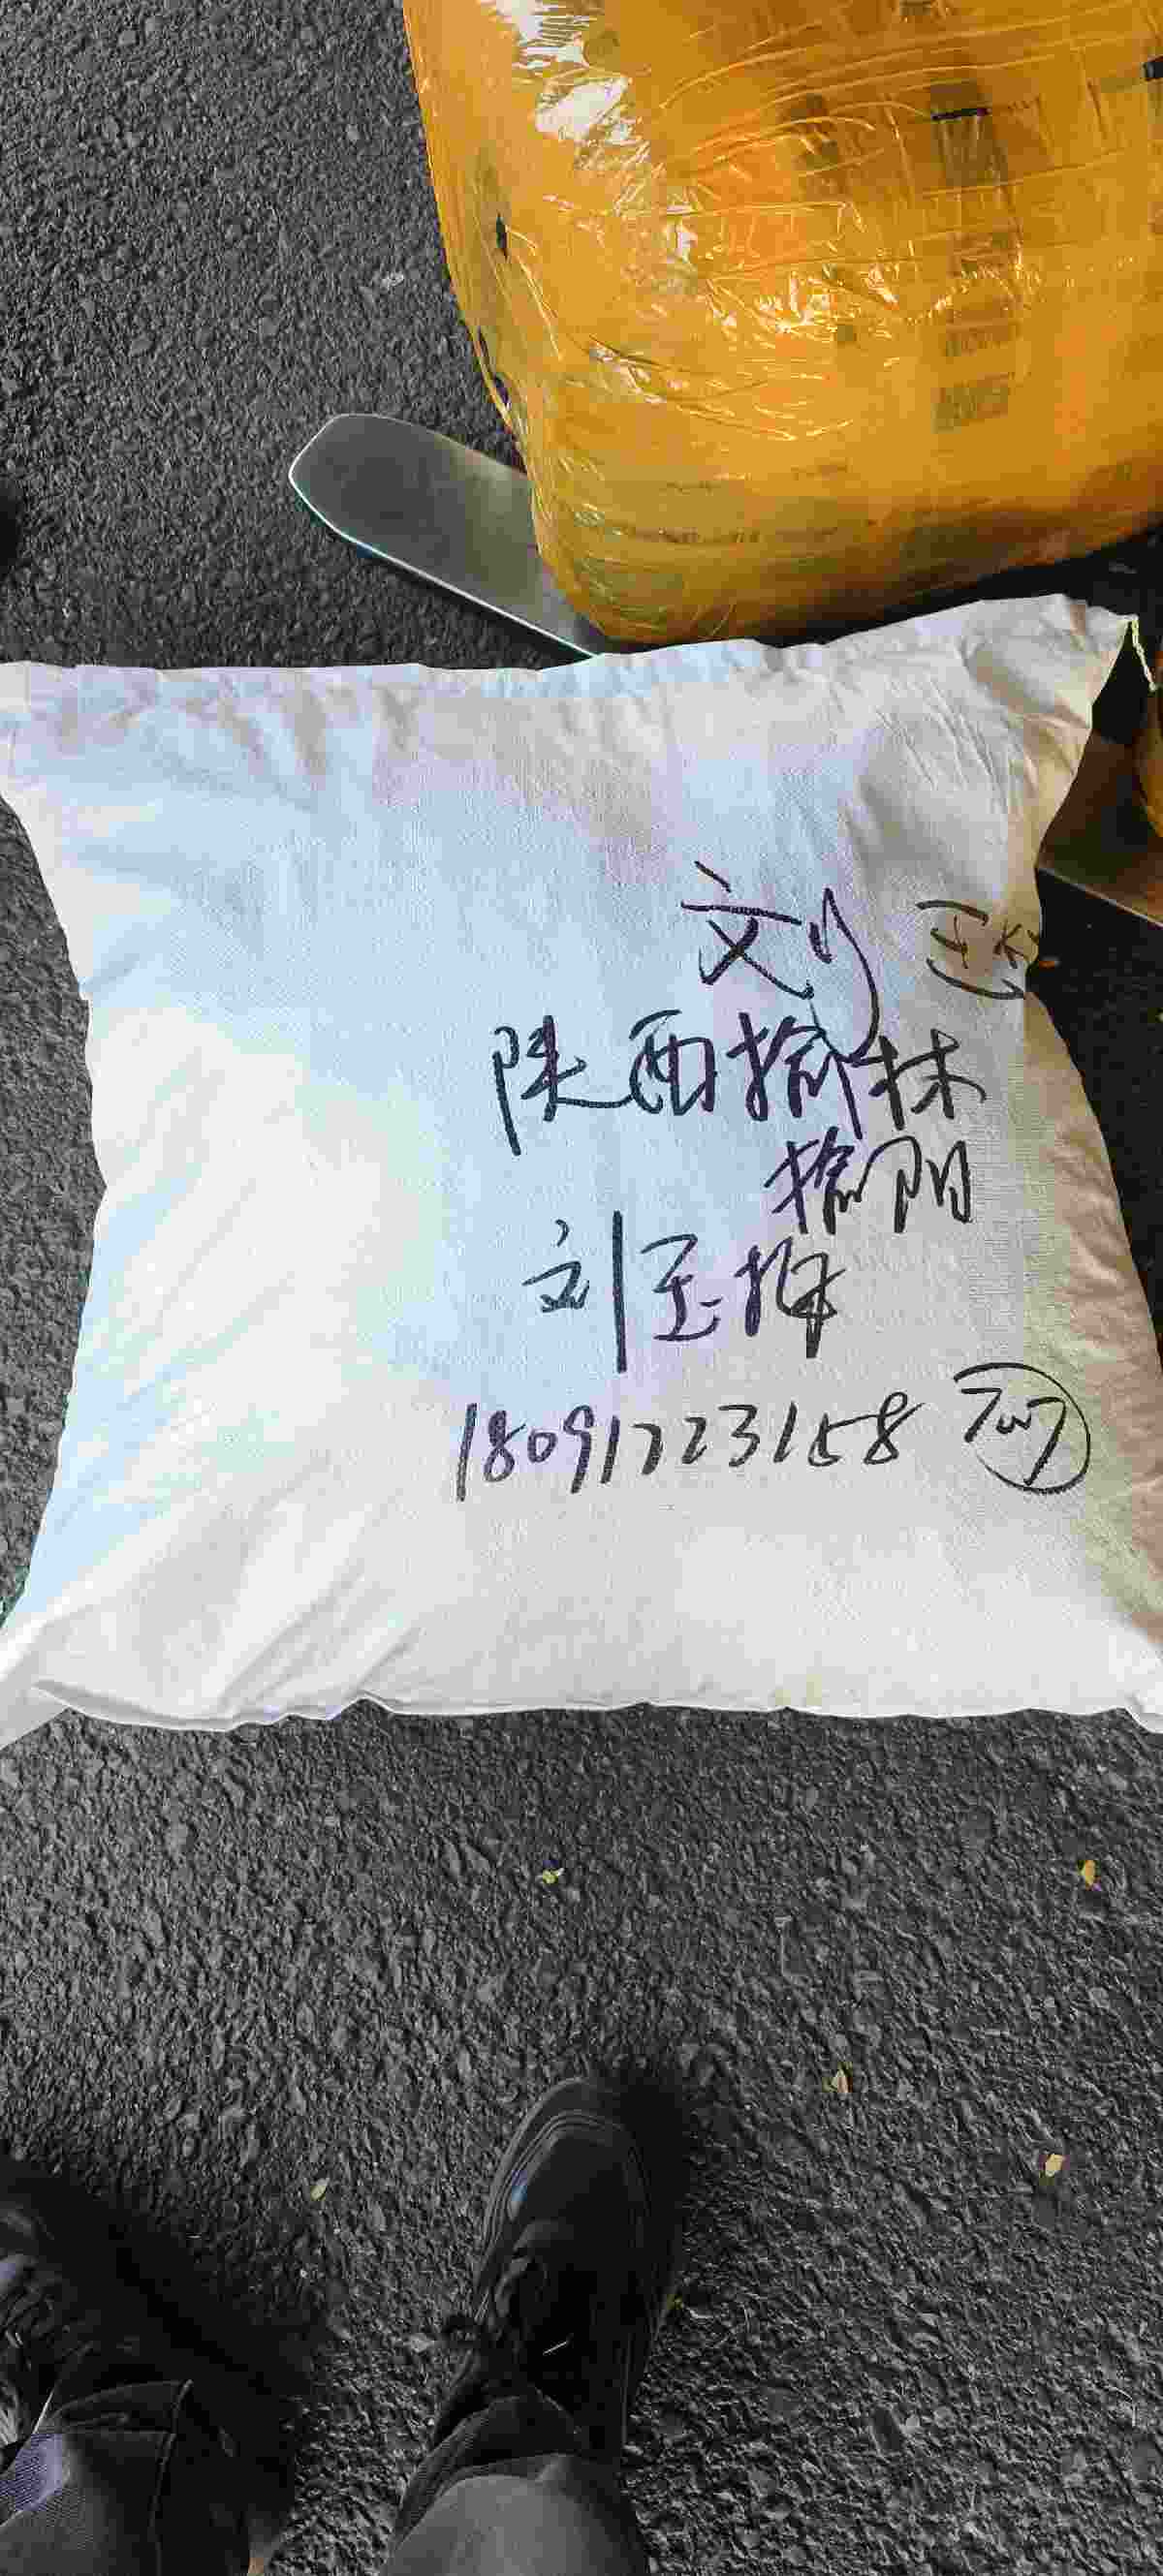 刘
陕西榆林
榆阳
刘玉辉
18091723158 707